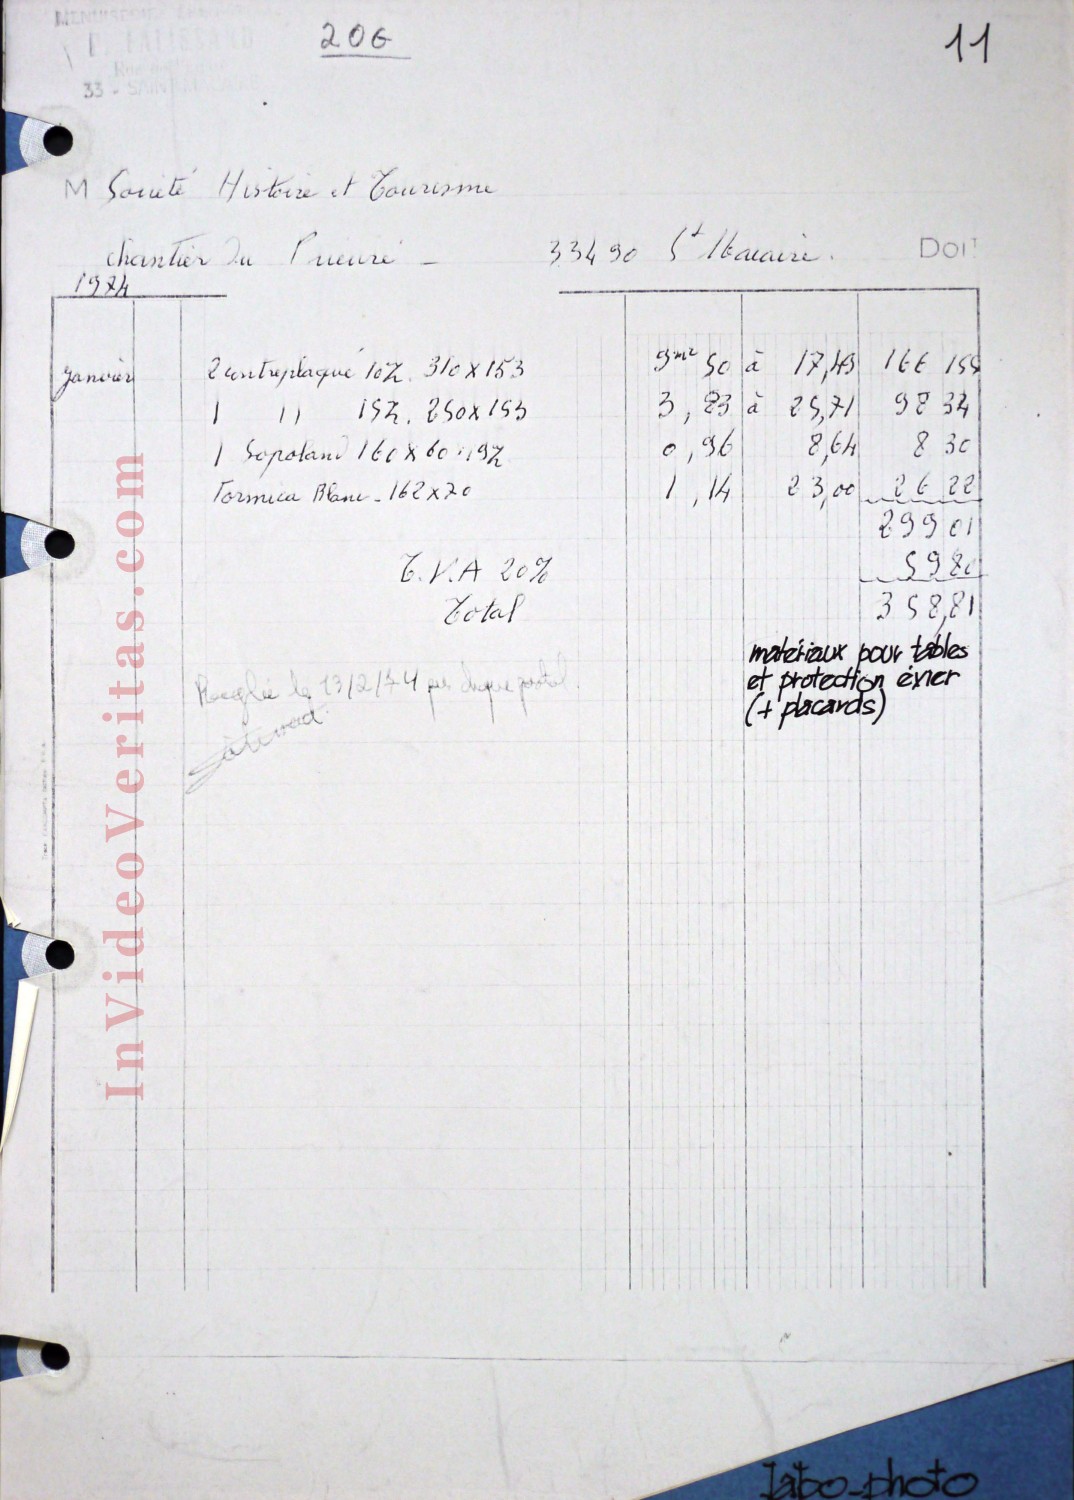 MENUISERIE
33 - SAINT
206
11
M Société Histoire et Tourisme
chantier Du Prieuré - 33490 St Macaire. DOIT
1974
Janvier 2 contreplaqué 10%. 310x153 9m² 50 à 17,49 166 155
1 11 15%. 250x153 3,83 à 25,71 98 34
1 Sopoland 160x60 19% 0,96 8,64 8 30
Formica Blanc - 162x70 1,14 23,00 26 22
299 01
T.V.A 20% 59 80
Total 358,81
matériaux pour tables
et protection évier
(+ placards)
Réglée le 13/2/74 par chèque postal
InVideoVeritas.com
labo-photo